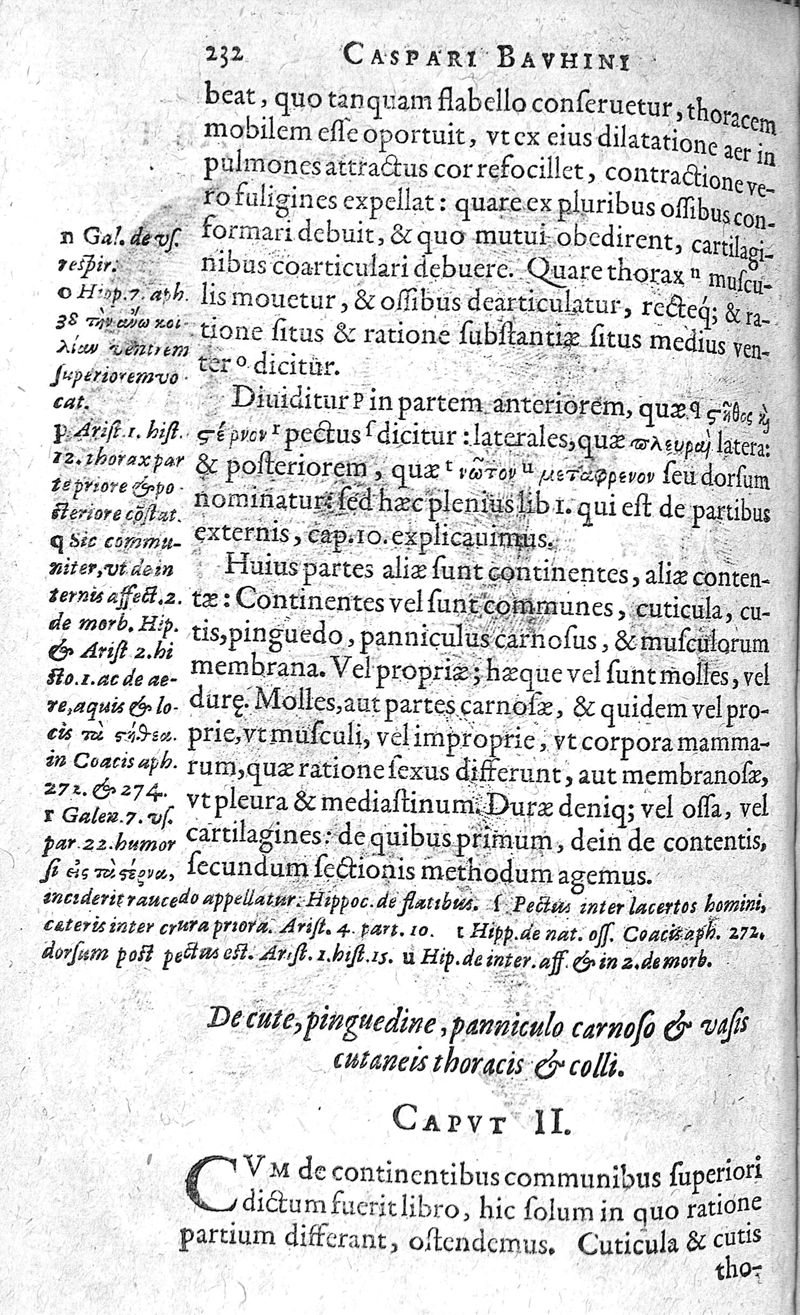 232 CASPARI BAVHINI
beat, quo tanquam flabello conſeruetur, thoracem
mobilem eſſe oportuit, vt ex eius dilatatione aer in
pulmones attractus cor refocillet, contractione ve-
ro fuligines expellat: quare ex pluribus oſſibus con-
formari debuit, & quo mutui obedirent, cartilagi-
nibus coarticulari debuere. Quare thorax ⁿ muſcu-
lis mouetur, & oſſibus dearticulatur, recteq́; & ra-
tione ſitus & ratione ſubſtantiæ ſitus medius ven-
ter ᵒ dicitur.
Diuiditur ᵖ in partem anteriorem, quæ q ϛῆθος ϗ̀
ϛέρνον ʳ pectus ſ dicitur: laterales, quæ ϖλευραὶ latera:
& poſteriorem, quæ ᵗ νῶτον ᵘ μετάφρενον ſeu dorſum
nominatur: ſed hæc plenius lib 1. qui eſt de partibus
externis, cap. 10. explicauimus.
Huius partes aliæ ſunt continentes, aliæ conten-
tæ: Continentes vel ſunt communes, cuticula, cu-
tis, pinguedo, panniculus carnoſus, & muſculorum
membrana. Vel propriæ; hæque vel ſunt molles, vel
durę. Molles, aut partes carnoſæ, & quidem vel pro-
prie, vt muſculi, vel improprie, vt corpora mamma-
rum, quæ ratione ſexus differunt, aut membranoſæ,
vt pleura & mediaſtinum. Duræ deniq; vel oſſa, vel
cartilagines: de quibus primum, dein de contentis,
ſecundum ſectionis methodum agemus.
n Gal. de vſ.
reſpir.
o Hipp. 7. aph.
38 τὴν ἄνω κοι-
λίαν ventrem
ſuperiorem vo-
cat.
p Ariſt. 1. hiſt.
12. thorax par
te priore & po-
ſteriore cõſtat.
q Sic commu-
niter, vt de in
ternis affect. 2.
de morb. Hip.
& Ariſt 2. hi
ſto. 1. ac de ae-
re, aquis & lo-
cis τὰ ϛήθεα.
in Coacis aph.
272. & 274.
r Galen. 7. vſ.
par. 22. humor
ſi εἰς τὰ ϛέρνα,
inciderit raucedo appellatur. Hippoc. de flatibus. ſ Pectus inter lacertos homini,
cæteris inter crura priora. Ariſt. 4. part. 10. t Hipp. de nat. oſſ. Coacis aph. 272.
dorſum poſt pectus eſt. Ariſt. 1. hiſt. 15. u Hip. de inter. aff. & in 2. de morb.
De cute, pinguedine, panniculo carnoſo & vaſis
cutaneis thoracis & colli.
CAPVT II.
CVM de continentibus communibus ſuperiori
dictum fuerit libro, hic ſolum in quo ratione
partium differant, oſtendemus. Cuticula & cutis
tho-